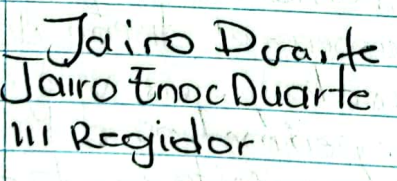 Jairo Duarte
Jairo Enoc Duarte
III Regidor